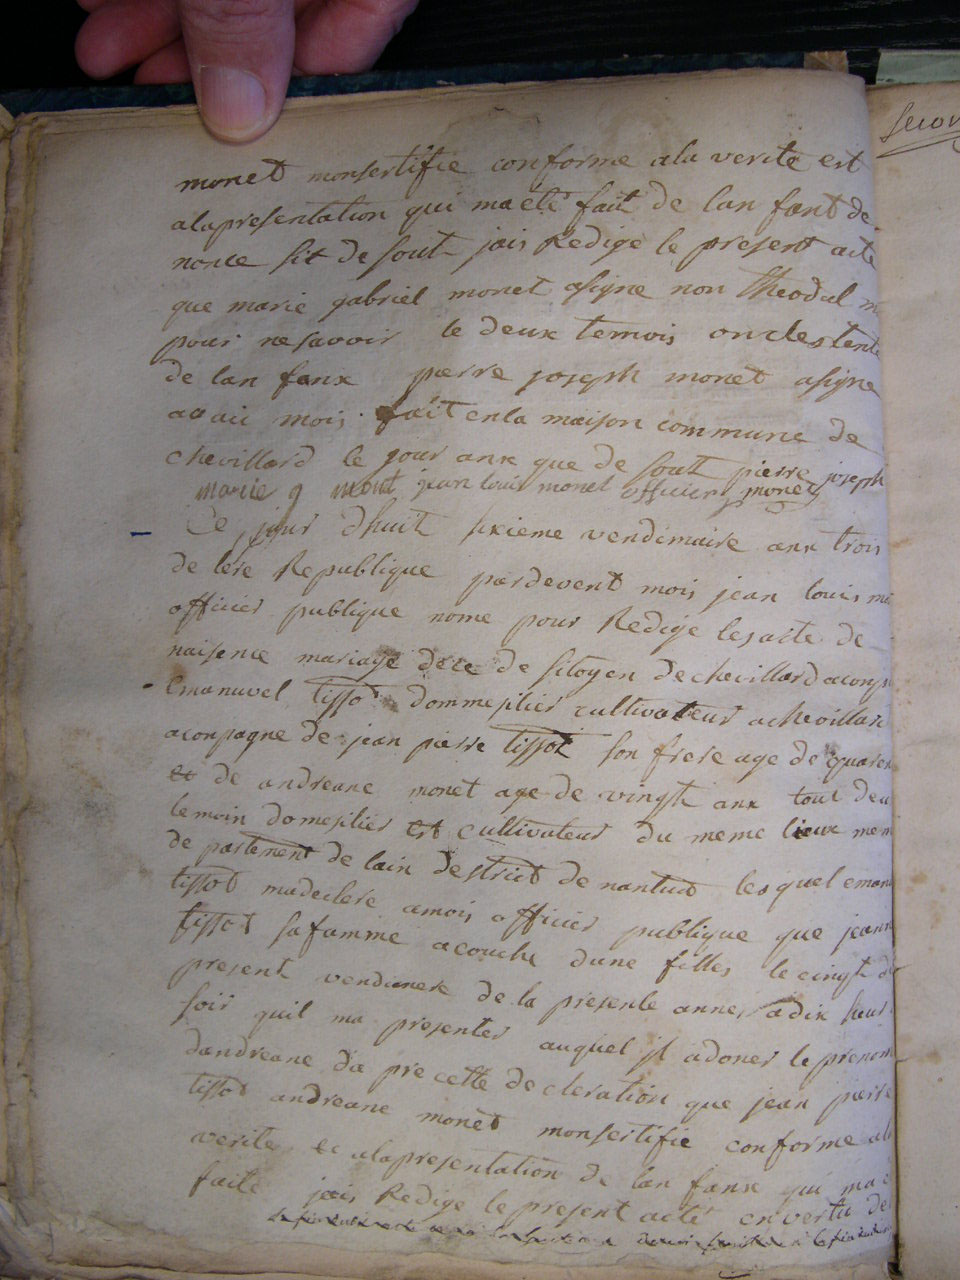 monet monsertifie conforme ala verite est
alapresentation qui ma eté fait de lan fant de
nonce sit de sout jais Redige le present acte
que marie gabriel monet asigne non Theodul
pour nesavoir le deux temois
de lan fanx pierre joseph monet asigne
avaic mois fait enla maison commune de
chevillard le jour anx que de sout pierre joseph
marie g monet jean louis monet officier monet
Ce jour dhuit sixieme vendimaire anx trois
de lere Republique pardevent mois jean louis
officier publique nome pour Redige lesacte de
naisence mariage dece de sitoyen de chevillard
Emanuvel tissot dommesilier cultivateur achevillard
aconpagne de jean pierre tissot son frere age de
et de andreane monet age de vingt anx tout
temoin domesilier est cultivateur du meme lieux
de partement de lain destrict de nantuat lesquel
tissot madeclere amois officier publique que jeanne
tissot safamme acouche dune filles le cingt
present vendimere de la presente annes adix heur
soir quil ma presenter auquel jl adoner le prenom
dandreane da pre cette decleration que jean pierre
tissot andreane monet monsertifie conforme
verite et alapresentation de lan fanx qui ma
faite jais Redige le present acte envertu de